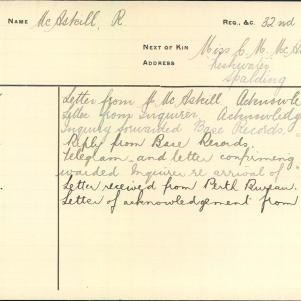 NAME McAskill, R REG., &C. 32nd
NEXT OF KIN Miss C. M. McAs
ADDRESS Freshwater
Spalding
Letter from M. McAskill, Acknowle
Letter from Inquirer. Acknowledg
Inquiry forwarded Base Records.
Reply from Base Records.
Telegram and letter confirming
warded Inquirer re arrival of "
Letter received from Perth Bureau.
Letter of acknowledgement from